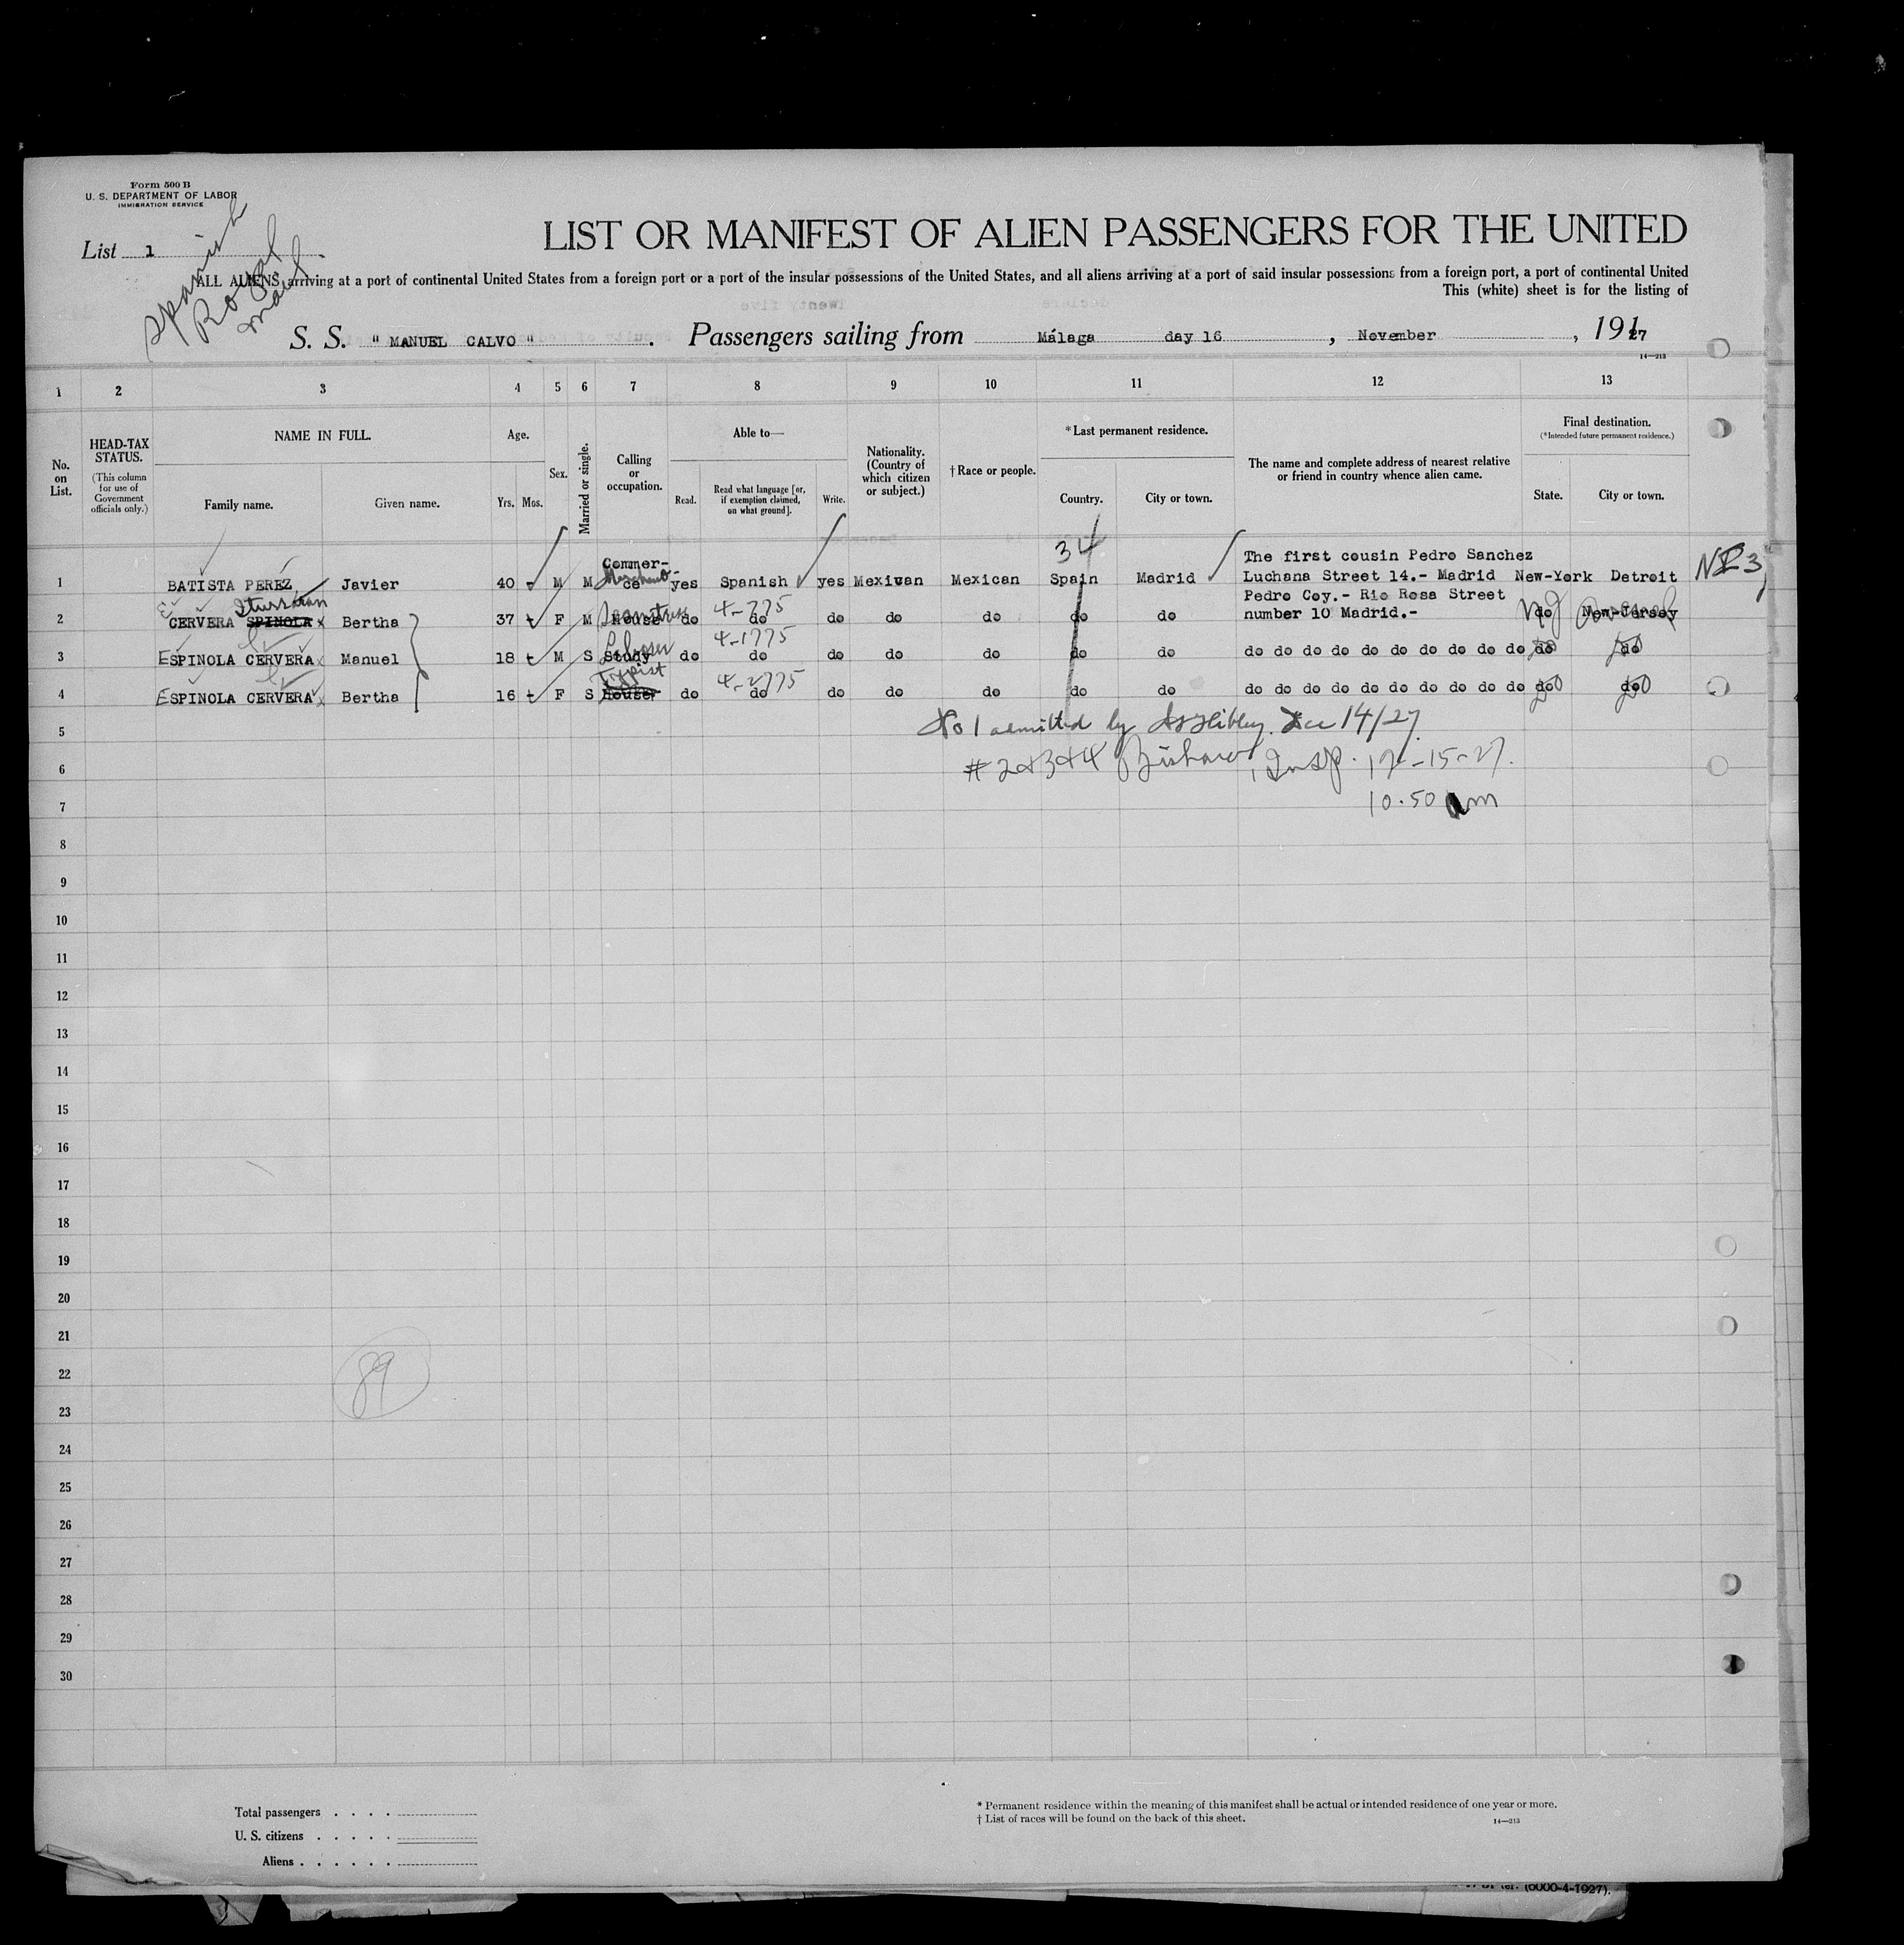 Form 500 B
U. S. DEPARTMENT OF LABOR
IMMIGRATION SERVICE
List 1
Spanish
Royal
Mail.
LIST OR MANIFEST OF ALIEN PASSENGERS FOR THE UNITED
ALL ALIENS arriving at a port of continental United States from a foreign port or a port of the insular possessions of the United States, and all aliens arriving at a port of said insular possessions from a foreign port, a port of continental United
This (white) sheet is for the listing of
S. S. " MANUEL CALVO " . Passengers sailing from Málaga day 16 , November , 19127
14—213
1 2 3 4 5 6 7 8 9 10 11 12 13
No. on List.
HEAD-TAX STATUS.
(This column for use of Government officials only.)
NAME IN FULL.
Family name. Given name.
Age.
Yrs. Mos.
Sex.
Married or single.
Calling or occupation.
Able to—
Read. Read what language [or, if exemption claimed, on what ground]. Write.
Nationality. (Country of which citizen or subject.)
† Race or people.
* Last permanent residence.
Country. City or town.
The name and complete address of nearest relative or friend in country whence alien came.
Final destination.
(* Intended future permanent residence.)
State. City or town.
34
Commer- The first cousin Pedro Sanchez
1 BATISTA PEREZ Javier 40 M M ce yes Spanish yes Mexivan Mexican Spain Madrid Luchana Street 14.- Madrid New-York Detroit
Merchant
Pedro Coy.- Rio Rosa Street
2 CERVERA SPINOLA Bertha 37 F M House do do do do do do do number 10 Madrid.- do New-Jersey
Seamstress 4-775 NJ
3 ESPINOLA CERVERA Manuel 18 M S Study do do do do do do do do do do do do do do do do do do do do
Laborer 4-1775
4 ESPINOLA CERVERA Bertha 16 F S House do do do do do do do do do do do do do do do do do do do do
Typist 4-2775
5
No 1 admitted by Dec 14/27
6
# 2&3&4 Insp. 12-15-27.
7
10.50 am
8
9
10
11
12
13
14
15
16
17
18
19
20
21
22
89
23
24
25
26
27
28
29
30
Total passengers . . . .
U. S. citizens . . . . .
Aliens . . . . . .
* Permanent residence within the meaning of this manifest shall be actual or intended residence of one year or more.
† List of races will be found on the back of this sheet.
14—213
(6000-4-1927).